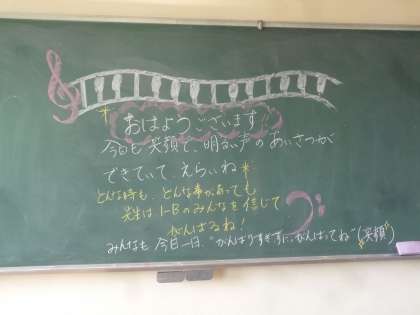 おはようございます!!
今日も笑顔で、明るい声のあいさつが
できていて、えらいね
どんな時も、どんな事があっても
先生は1-Bのみんなを信じて
がんばるね!
みんなも、今日一日、"がんばりすぎずに、がんばってね"(笑顔)